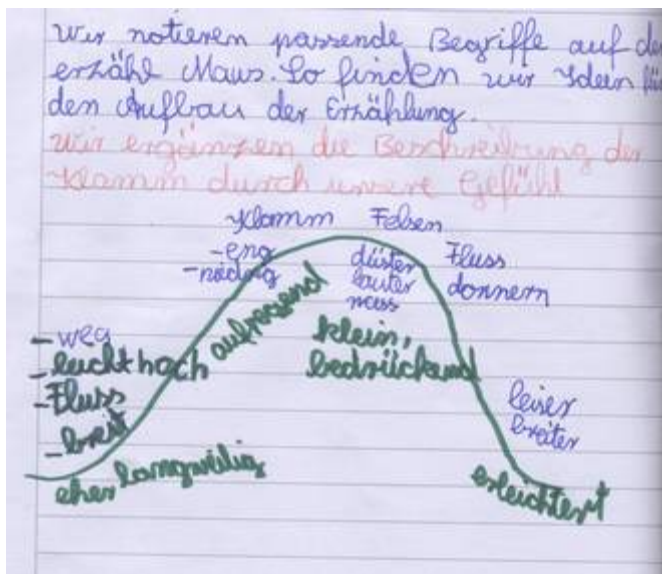 wir notieren passende Begriffe auf der
erzähl Maus. So finden wir Idein für
den Aufbau der Erzählung.
wir ergänzen die Beschreibung der
Klamm durch unsere Gefühl
Klamm Felsen
- eng
- niedrig
düster
lauter
nass
Fluss
donnern
aufregend
klein,
bedrückend
- weg
- leicht hoch
- Fluss
- breit
leiser
breiter
eher langweilig
erleichtert